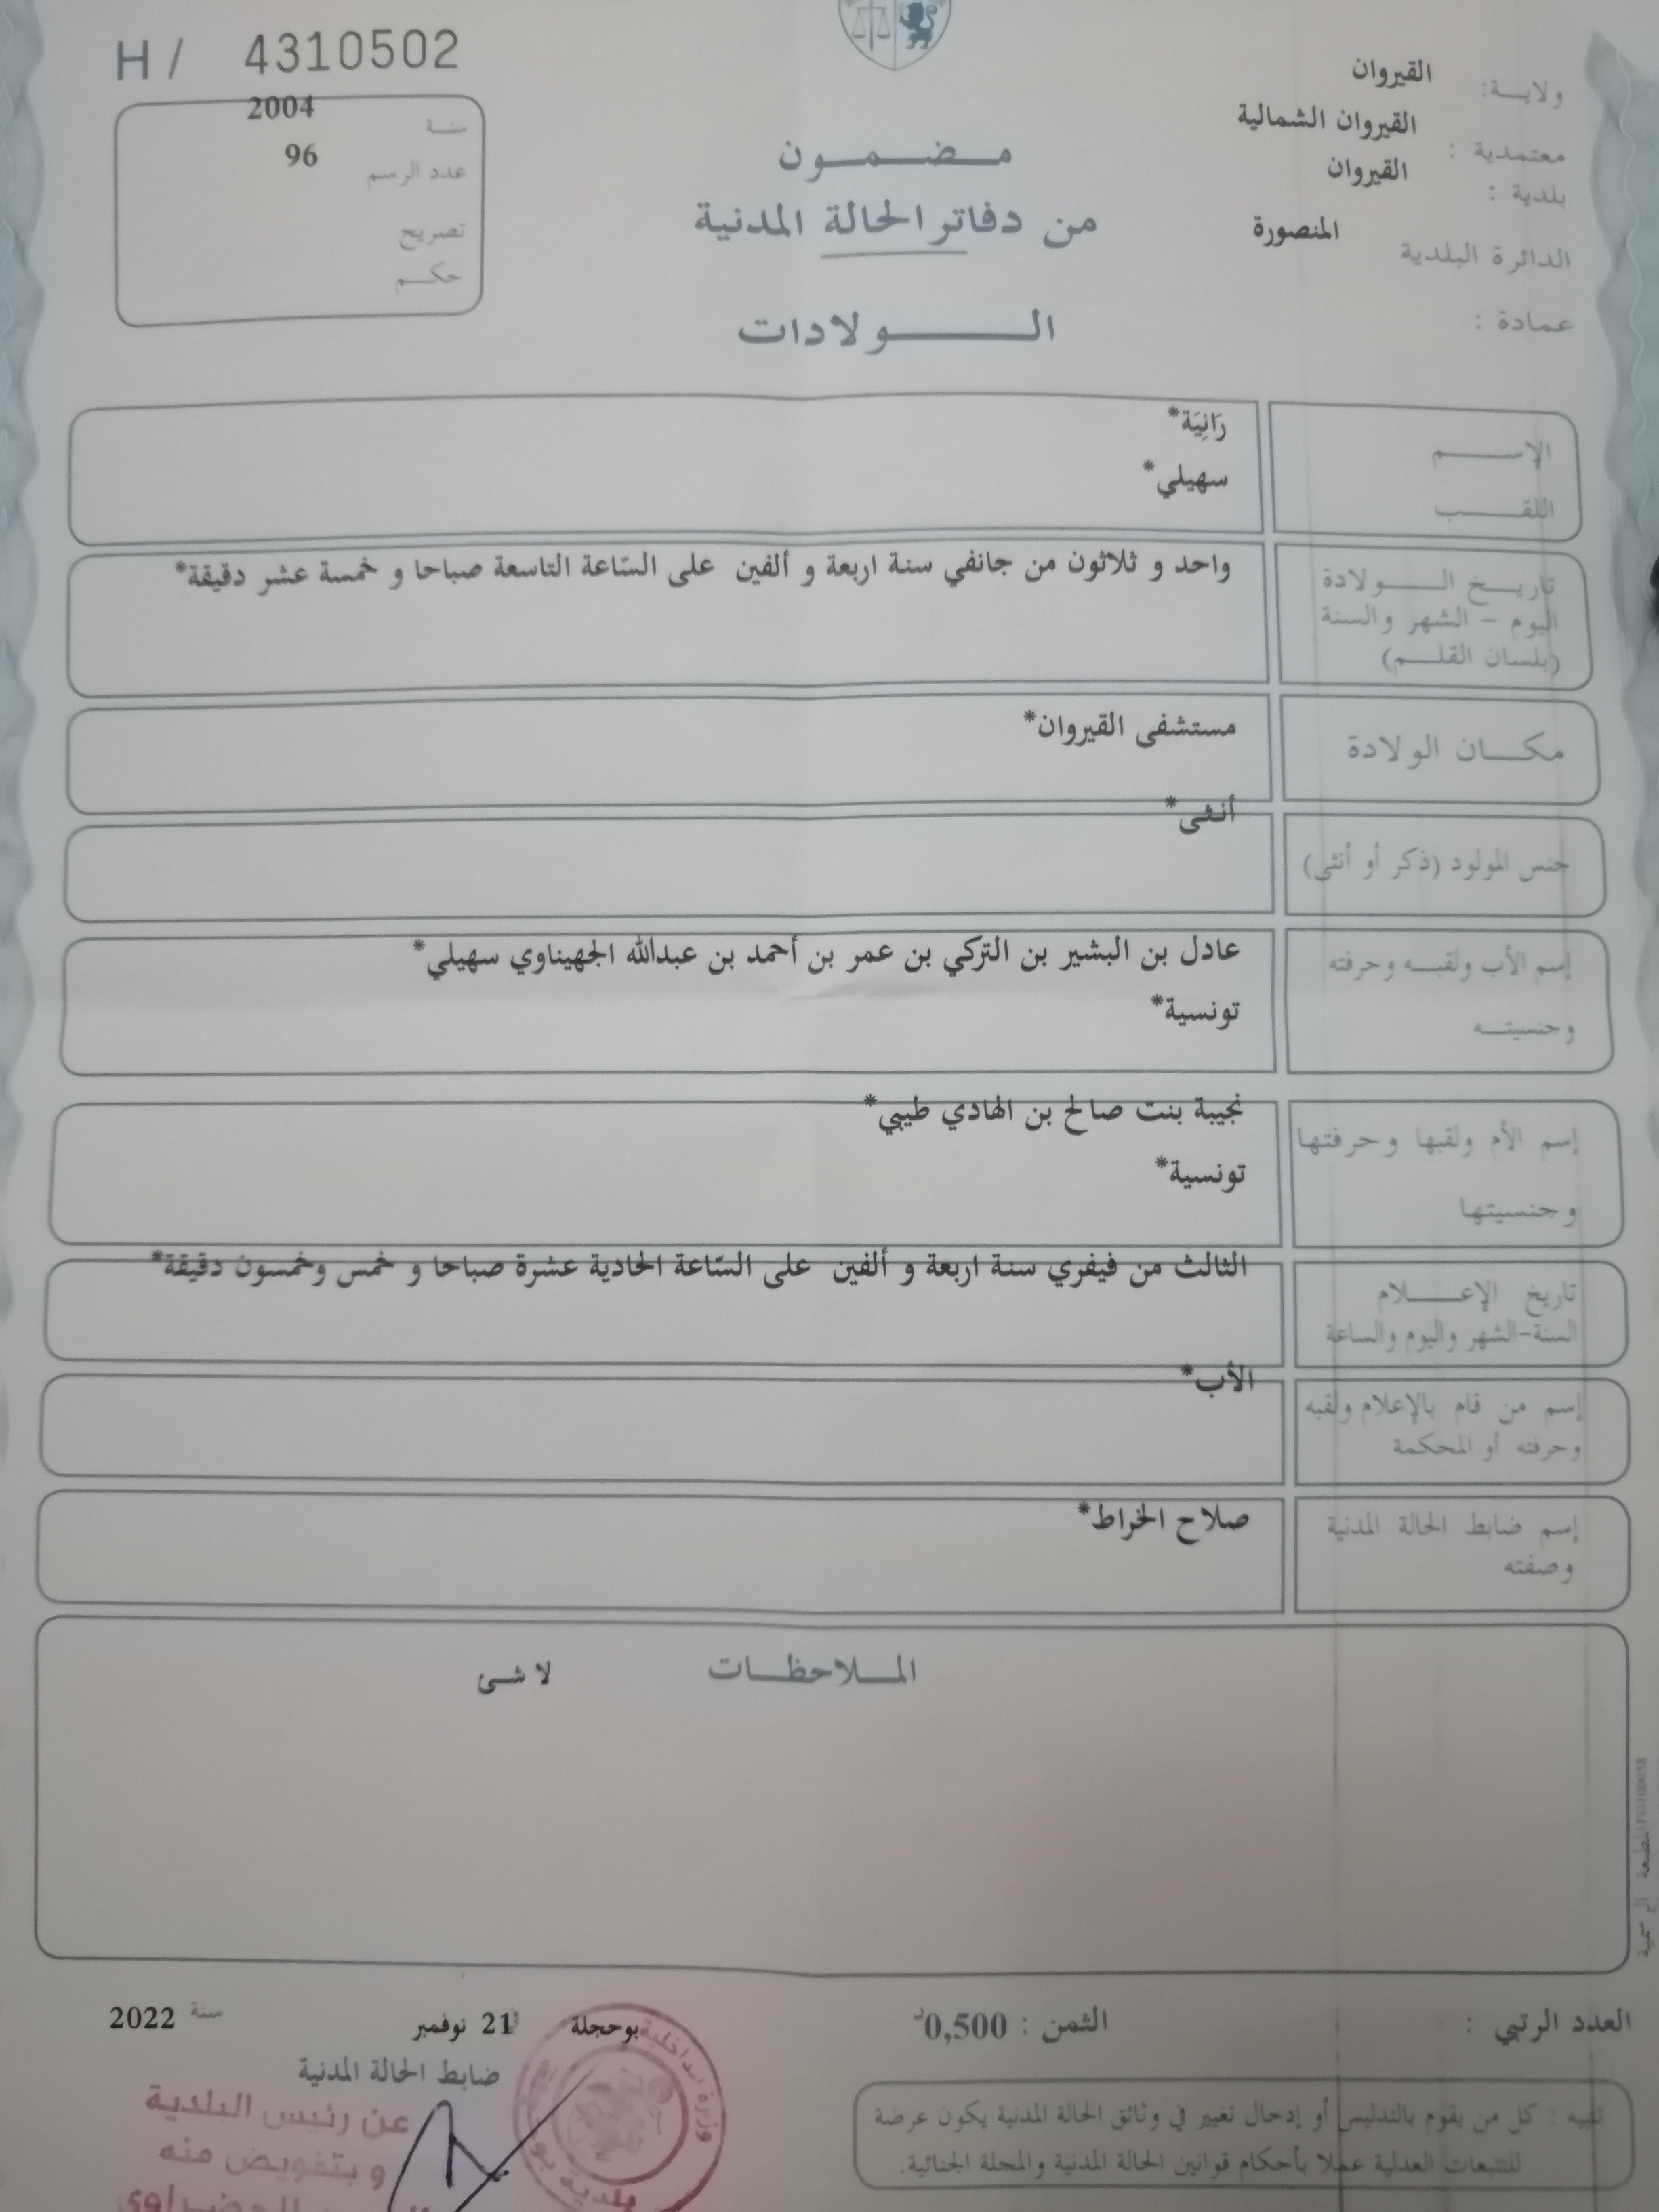 H / 4310502
ولايــة: القيروان
معتمدية : القيروان الشمالية
بلدية : القيروان
الدائرة البلدية المنصورة
عمادة :
سنــة 2004
عدد الرسم 96
تصريح
حكــم
مـــضـــمـــون
من دفاتر الحالة المدنية
الــــــولادات
الإســــم رَانِيَة*
اللقــــب سهيلي*
تاريــخ الــــولادة واحد و ثلاثون من جانفي سنة اربعة و ألفين على السّاعة التاسعة صباحا و خمسة عشر دقيقة*
اليوم – الشهر والسنة
(بلسان القلــم)
مكـــان الولادة مستشفى القيروان*
جنس المولود (ذكر أو أنثى) أنثى*
إسم الأب ولقبــه وحرفته عادل بن البشير بن التركي بن عمر بن أحمد بن عبدالله الجهيناوي سهيلي*
وجنسيتــه تونسية*
إسم الأم ولقبها وحرفتها نجيبة بنت صالح بن الهادي طيبي*
وجنسيتها تونسية*
تاريخ الإعــــلام الثالث من فيفري سنة اربعة و ألفين على السّاعة الحادية عشرة صباحا و خمس وخمسون دقيقة*
السنة-الشهر واليوم والساعة
إسم من قام بالإعلام ولقبه الأب*
وحرفته أو المحكمة
إسم ضابط الحالة المدنية صلاح الخراط*
وصفته
المــلاحظــات لا شئ
العدد الرتبي : الثمن : 0,500د
بوحجلة في 21 نوفمبر سنة 2022
ضابط الحالة المدنية
عن رئيس البلدية
و بتفويض منه
وزارة الداخلية
تنبيه : كل من يقوم بالتدليس أو إدخال تغيير في وثائق الحالة المدنية يكون عرضة
للتتبعات العدلية عملا بأحكام قوانين الحالة المدنية والمجلة الجنائية.